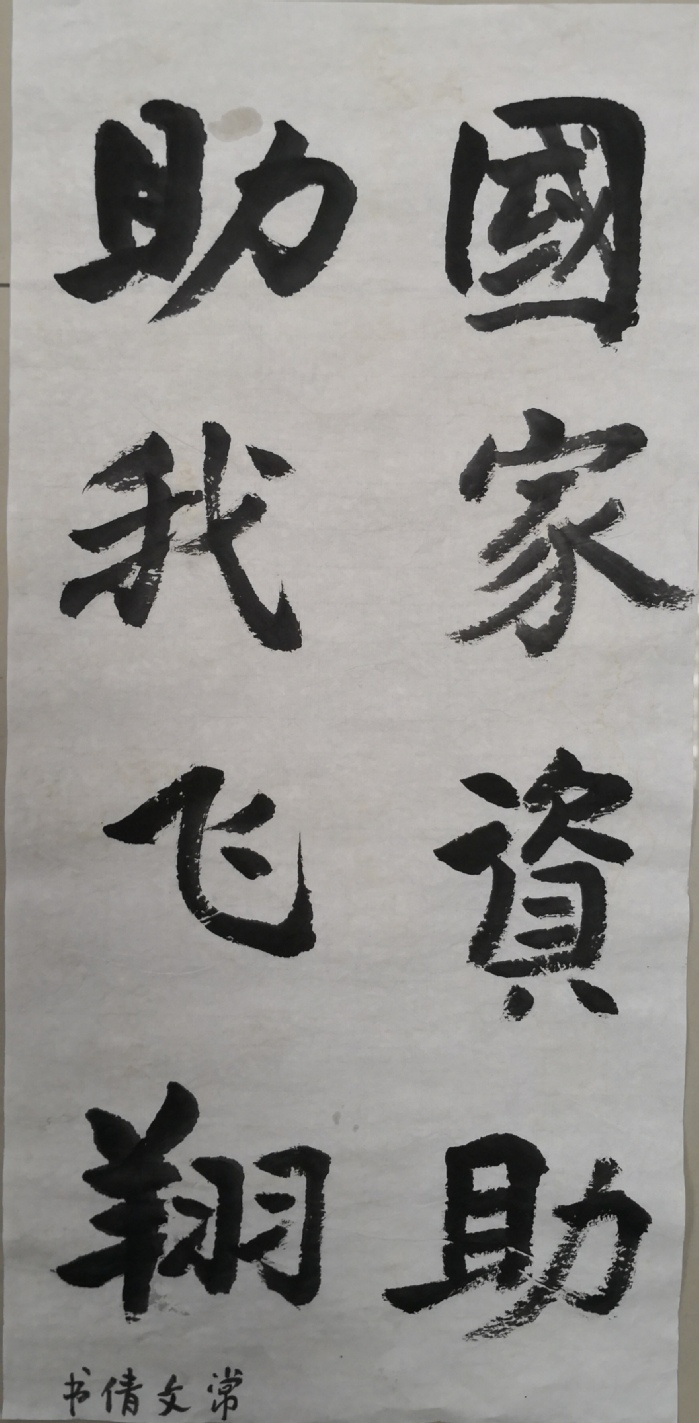 國家資助
助我飞翔
常文倩书